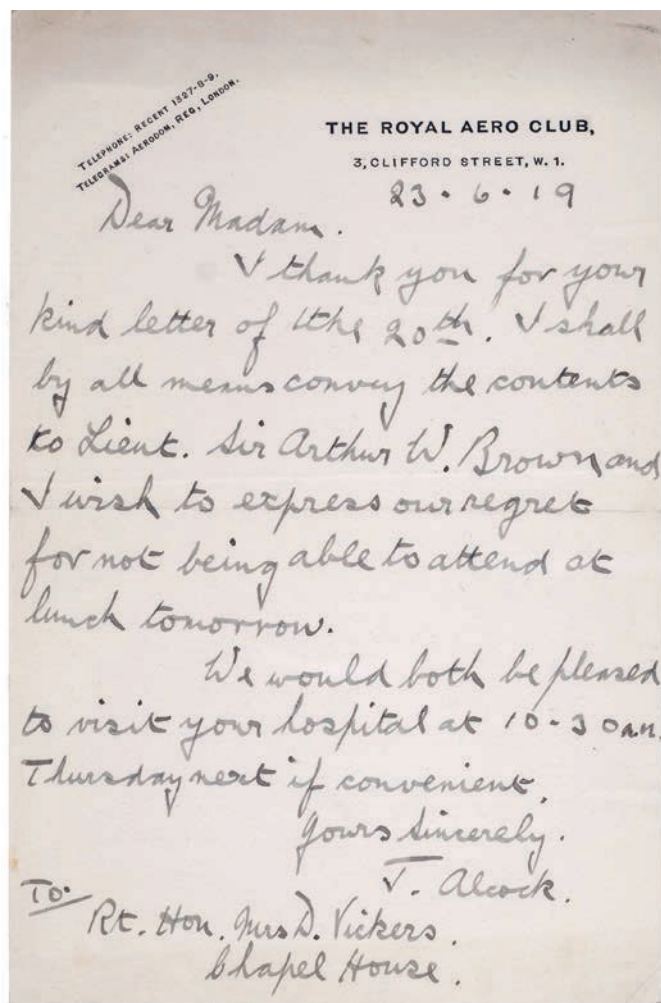 TELEPHONE: REGENT 1327-8-9.
TELEGRAMS: AERODOM, REG, LONDON.
THE ROYAL AERO CLUB,
3, CLIFFORD STREET, W. 1.
23 . 6 . 19
Dear Madam.
I thank you for your
kind letter of the 20th. I shall
by all means convey the contents
to Lieut. Sir Arthur W. Brown and
I wish to express our regret
for not being able to attend at
lunch tomorrow.
We would both be pleased
to visit your hospital at 10-30 a.m.
Thursday next if convenient.
Yours Sincerely.
J. Alcock.
To.
Rt. Hon. Mrs D. Vickers.
Chapel House.